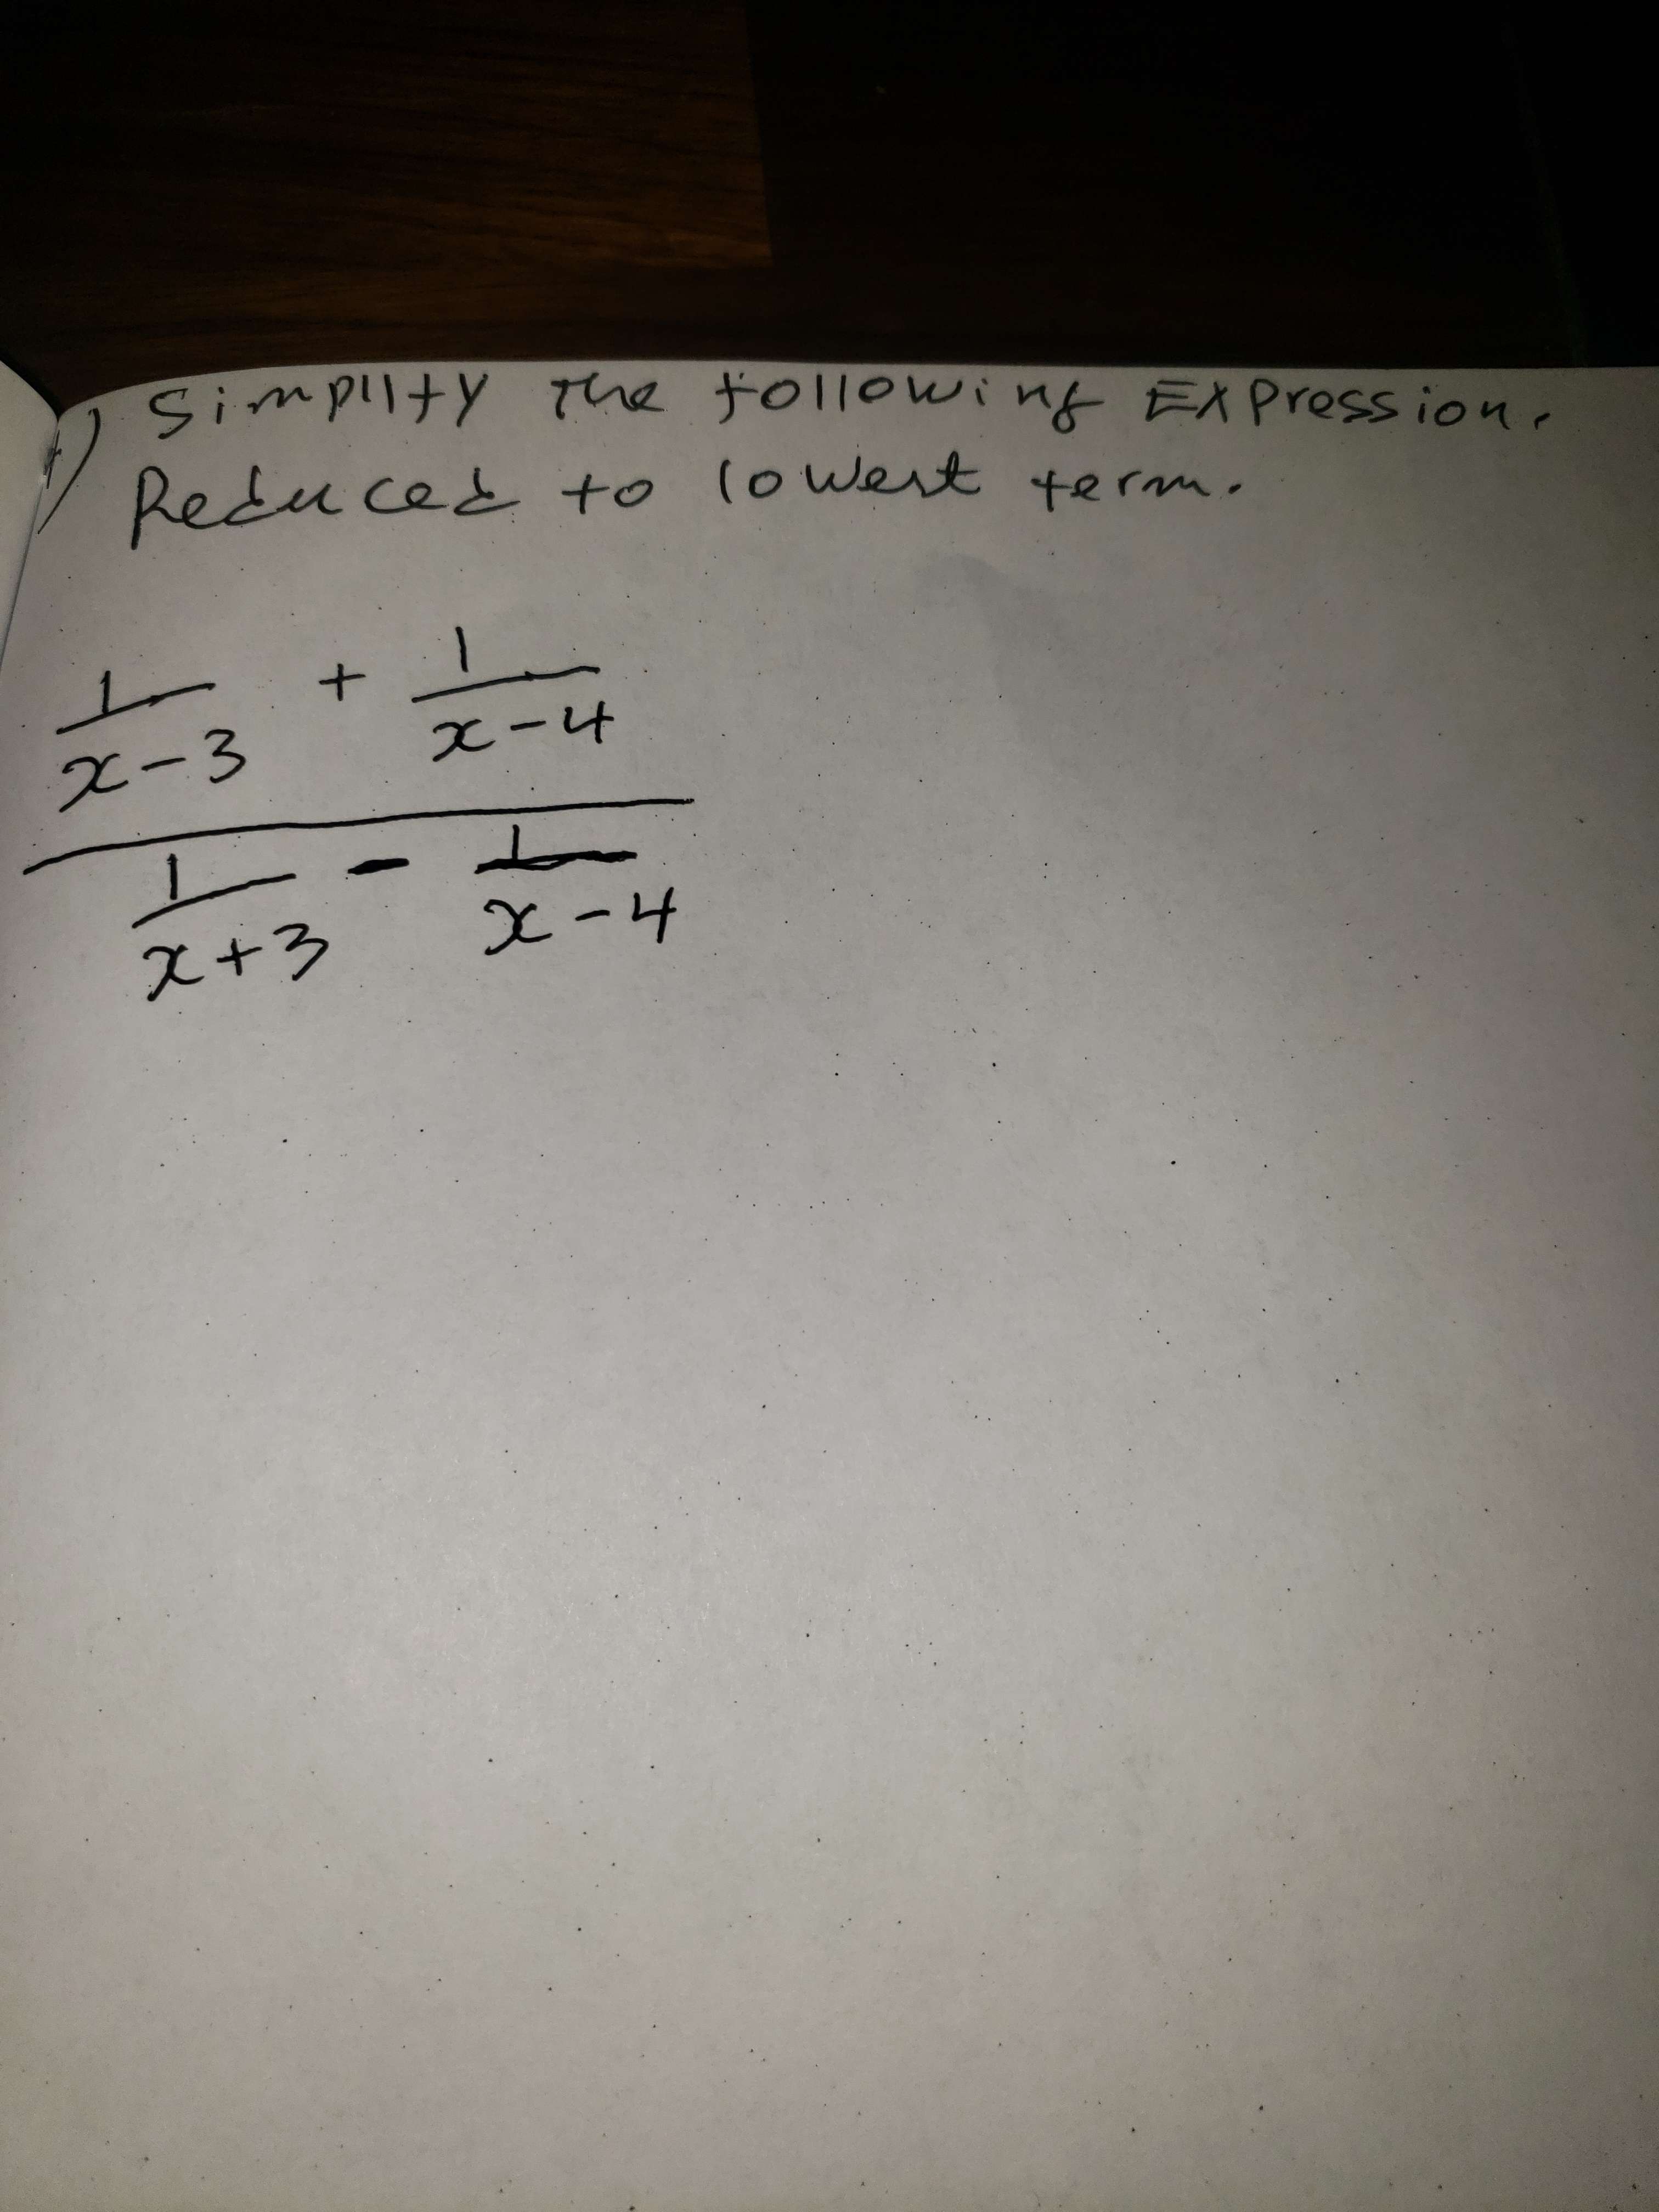 1) Simplify the following Expression.
Reduced to lowest term.
1 + 1
x-3 x-4
1 - 1
x+3 x-4